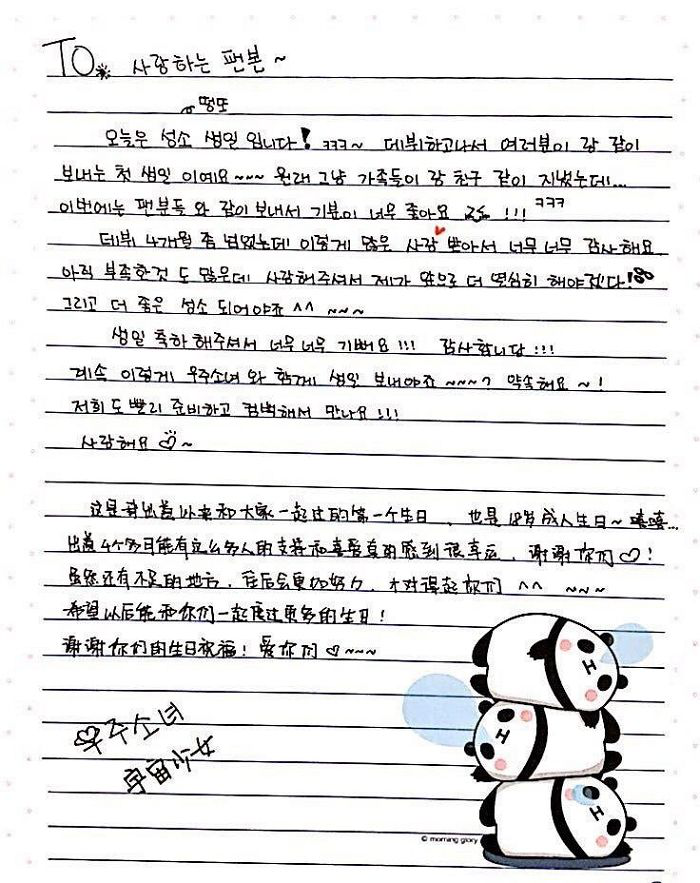 TO. 사랑하는 팬분~
떵또
오늘은 성소 생일 입니다! ㅋㅋㅋ~ 데뷔하고나서 여러분이 랑 같이
보내는 첫 생일 이예요~~~ 원래 그냥 가족들이 랑 친구 같이 지냈는데...
이번에는 팬분들 와 같이 보내서 기분이 너무 좋아요 !!! ㅋㅋㅋ
데뷔 4개월 좀 넘었는데 이렇게 많은 사랑 받아서 너무 너무 감사해요.
아직 부족한것 도 많은데 사랑해주셔서 제가 앞으로 더 열심히 해야겠다!
그리고 더 좋은 성소 되어야죠 ^^ ~~~
생일 축하 해주셔서 너무 너무 기뻐요 !!! 감사합니당 !!!
계속 이렇게 우주소녀 와 함께 생일 보내야죠 ~~~? 약속해요 ~!
저희 도 빨리 준비하고 컴백해서 만나요 !!!
사랑해요 ♡~
这是我出道以来和大家一起过的第一个生日、也是18岁成人生日~ 嘻嘻...
出道4个多月能有这么多人的支持和喜爱真的感到很幸运、谢谢你们♡!
虽然还有不足的地方、往后会更加努力、才对得起你们 ^^ ~~~
希望以后能和你们一起度过更多的生日!
谢谢你们的生日祝福! 爱你们♡~~~
우주소녀
宇宙少女
© morning glory